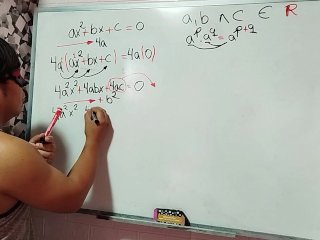 ax²+bx+c=0
4a
4a(ax²+bx+c)=4a(0)
4a²x²+4abx+4ac=0
4a²x² + b²
a,b ∧ c ∈ R
aᵖaᵠ=aᵖ⁺ᵠ